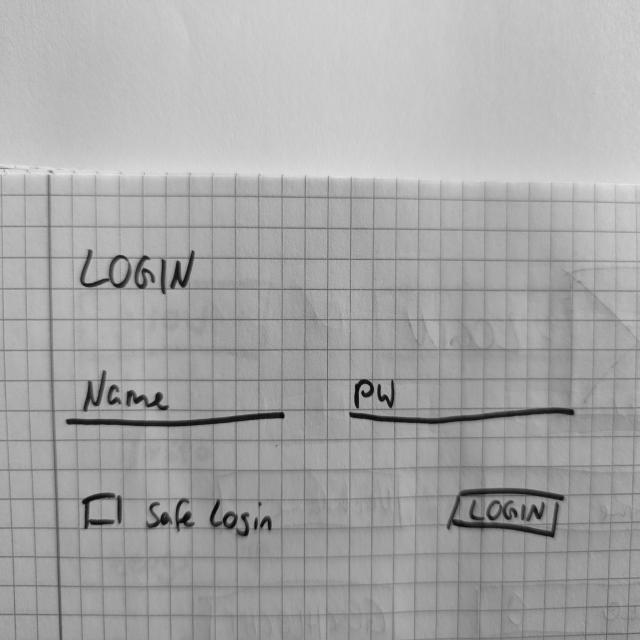 LOGIN
Name PW
Safe Login LOGIN